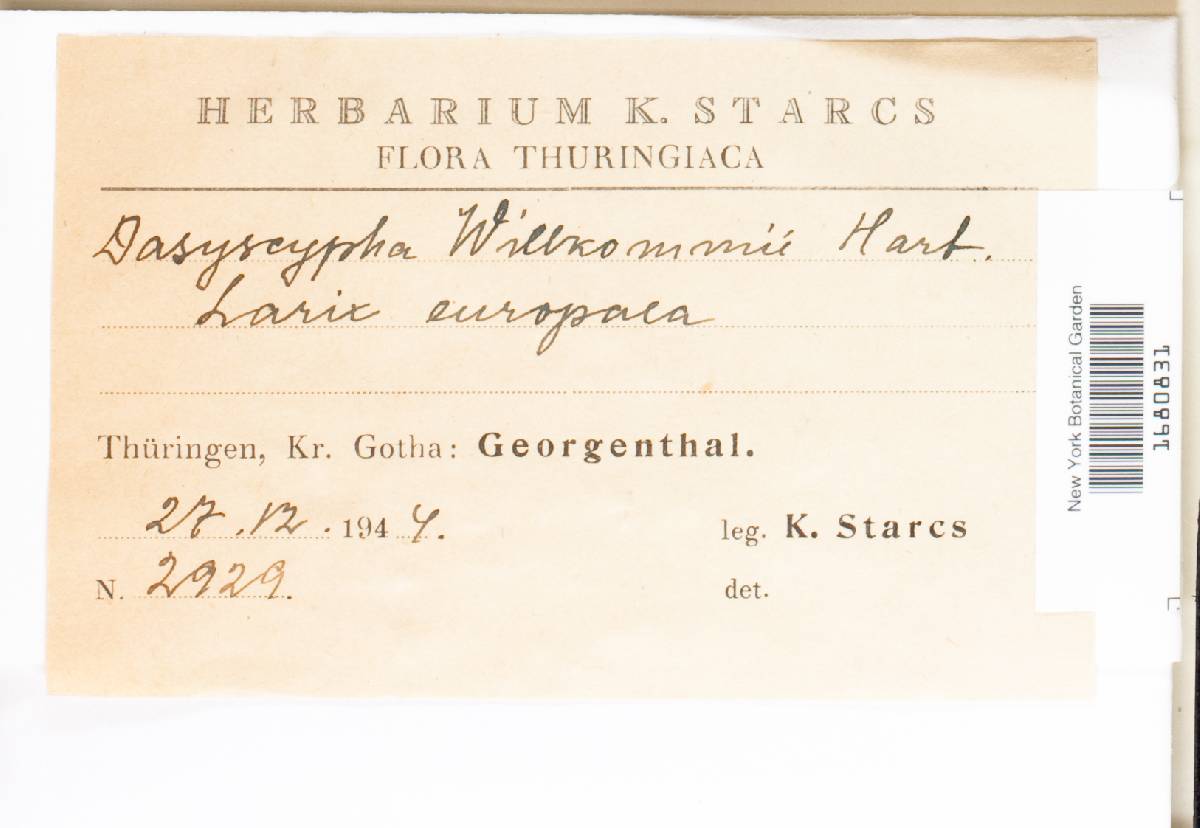 HERBARIUM K. STARCS
FLORA THURINGIACA
Dasyscypha Willkommii Hart.
Larix europaea
Thüringen, Kr. Gotha: Georgenthal.
27.12.1944.
leg. K. Starcs
N. 2929.
det.
New York Botanical Garden
1680831